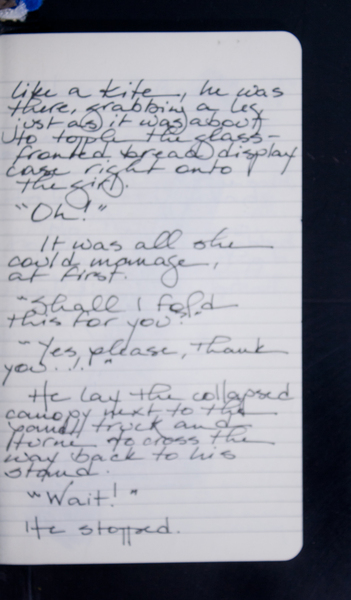 like a kite, he was
there, grabbing a leg
just as it was about
to topple the glass-
fronted bread display
case right onto
the girl.
"Oh!"
It was all she
could manage,
at first.
"Shall I fold
this for you?"
"Yes, please, thank
you...."
He lay the collapsed
canopy next to the
panel truck and
turned to cross the
way back to his
stand.
"Wait!"
He stopped.